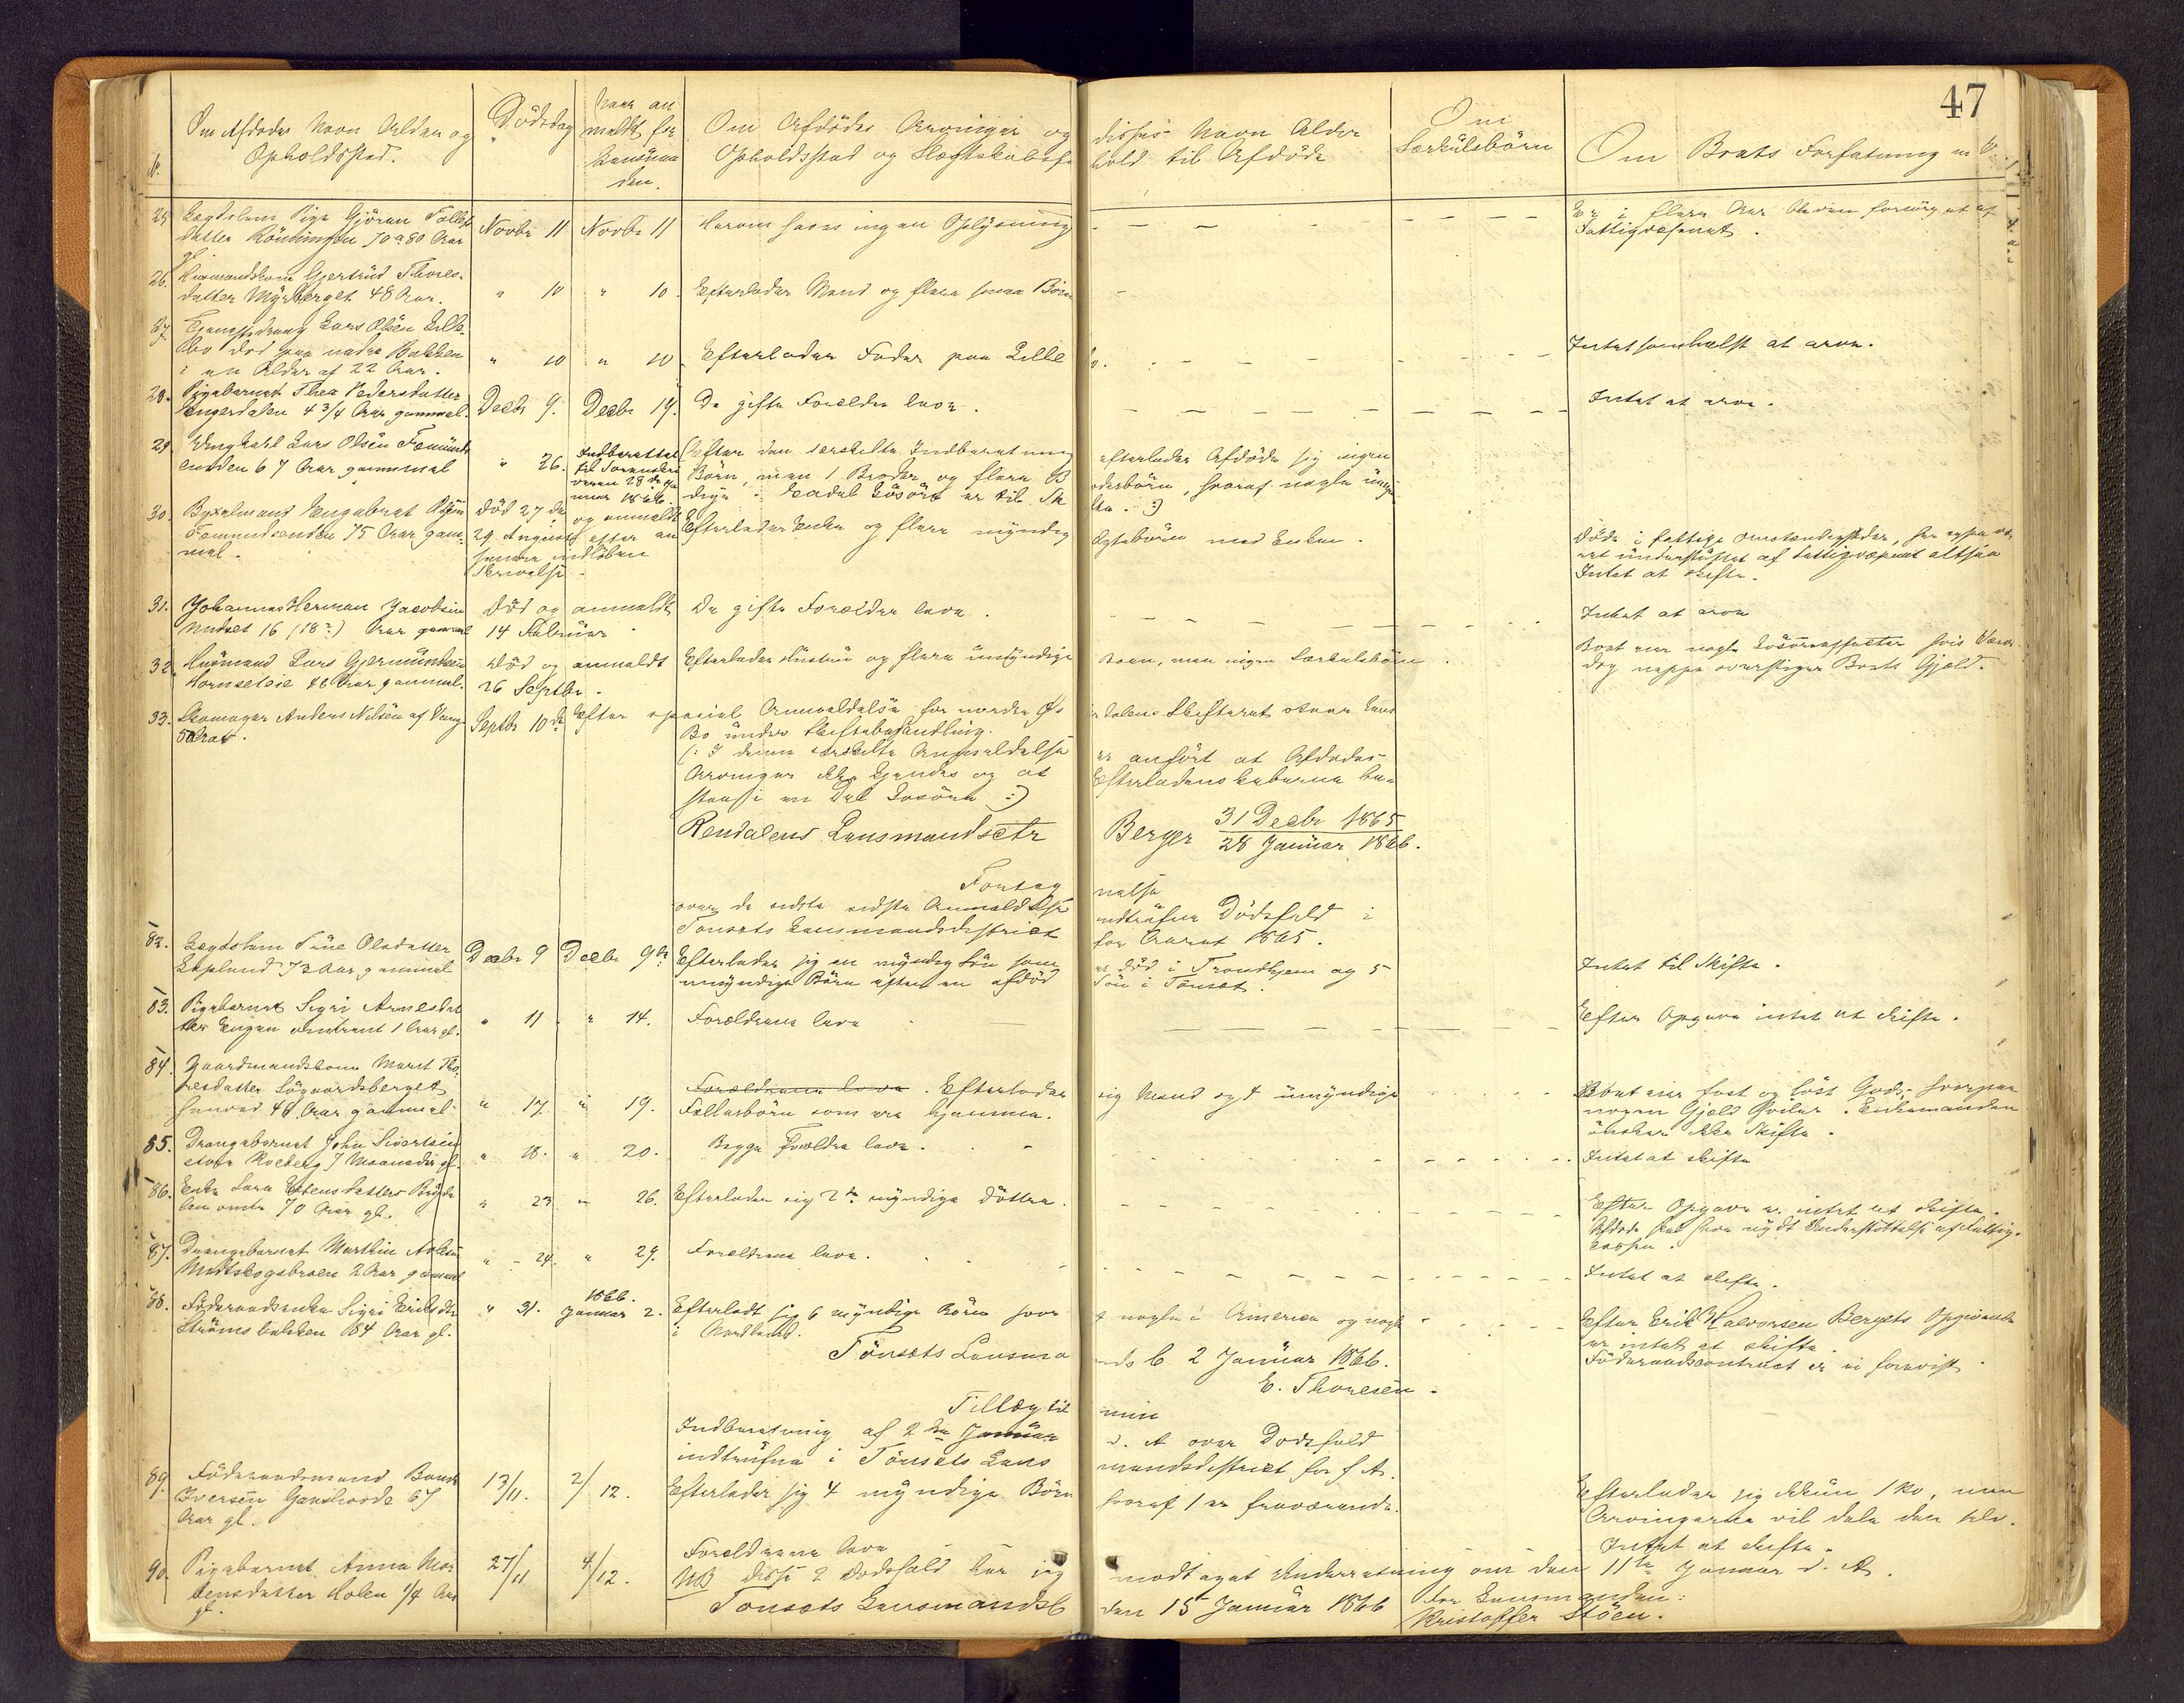 47
Om Afdødes Navn Alder og
Opholdssted.
Dödsdag
Naar an
meldt for
Lensman
den.
Om Afdödes Arvinger og disses Navn Alder
Opholdssted og Slægtskabsforhold til Afdöde
Om
Særkulsbörn
Om Boets Forfatning m. V.
25. Lægdslem Pige Gjöran Tollefs
datter Rönningen 70 a 80 Aar
gl.
Novbr 11 Novbr 11 Herom haves ingen Oplysning
Er i flere Aar bleven forsörget af
Fattigvæsenet.
26. Huusmandskone Gjertrud Thores-
datter Myrberget 48 Aar.
" 10 " 10. Efterlader Mand og flere smaa Börn
27. Tjenestedreng Lars Olsen Lille-
bo död paa nedre Bakken
i en Alder af 22 Aar.
" 10 " 10 Efterlader Fader paa Lillebo.
Intet somhelst at arve.
28. Pigebarnet Thea Pedersdatter
Engerdalen 4 3/4 Aar gammel.
Decbr 9. Decbr 19. De gifte Forældre leve.
Intet at arve.
29. Ungkarl Lars Olsen Femunds
enden 67 Aar gammel
" 26. Indberettet
til Sorenskri
veren 28de Ja
nuar 1866.
(Efter den særskilte Indberetning efterlader Afdöde sig ingen
Börn, men 1 Broder og flere Broderbörn, hvoraf nogle umyn
dige. Endel Lösöre er til Skifte. :)
30. Byxelmand Engebret Olsen
Femundsenden 75 Aar gam-
mel.
Död 27 de og anmeldt
29 August efter en
senere indlöben
Skrivelse
Efterlader Enke og flere myndige Ægtebörn med Enken.
Döde i fattige Omstændigheder, har ogsaa væ
ret understöttet af Fattigvæsenet altsaa
Intet at skifte.
31. Johannes Herman Jacobsen
Midset 16 (18?) Aar gammel
Död og anmeldt
14 Februar
De gifte Forældre leve.
Intet at arve
32. Huusmand Lars Gjermundsen
Hornseteie 48 Aar gammel.
Död og anmeldt
26 Septbr.
Efterlader Hustru og flere umyndige Börn, men ingen Særkulsbörn.
Boet eier nogle Lösöreeffecter hvis Værdi
dog neppe overstiger Boets Gjæld.
33. Skomager Anders Nilsen af Vang
50 Aar.
Septbr 10de Efter special Anmeldelse for nordre Østerdalens Skifteret staar hans
Bo under Skiftebehandling.
(: I denne særskilte Anmeldelse er anfört at Afdödes
Arvinger ikke kjendes og at Efterladenskaberne be-
staaer i en Del Lösöre :)
Rendalens Lensmandsctr Berger 31 Decbr 1865
28 Januar 1866.
Fortegnelse
over de siden sidste Anmeldelse indtrufne Dödsfald i
Tönsets Lensmandsdistrict for Aaret 1865.
82. Lægdslem Sine Olsdatter
Eggelund 73 Aar gammel
Decbr 9 Decbr 9de Efterlader sig en myndig Sön som er död i Trondhjem og 5
myndige Börn efter en afdöd Sön i Tönset.
Intet til Skifte.
83. Pigebarnet Sigri Arnesdat
ter Engen omtrent 1 Aar gl.
" 11 " 14. Forældrene leve
Efter Opgave intet at skifte.
84. Gaardmandskone Marit Tho-
resdatter Sögaardsberget
hunved 46 Aar gammel.
" 17. " 19. Forældrene leve. Efterlader sig Mand og 4 umyndige
Fællesbörn som ere hjemme.
Boet eier fast og löst Gods, hvorpaa
nogen Gjæld hviler. Enkemanden
önsker ikke Skifte.
85. Drengebarnet John Sivertsen
store Roeberg 7 Maaneder gl.
" 18. " 20. Begge Forældre leve.
Intet at skifte
86. Enke Sara Estensdatter Bryde
len omtr 70 Aar gl.
" 23 " 26. Efterlader sig 2de myndige Döttre.
Efter Opgave er intet at skifte.
Afdöde skal have nydt Understöttelse af Fattig-
cassen.
87. Drengebarnet Marthin Arnesen
Midtskogsbraaten 2 Aar gammel
" 24. " 29. Forældrene leve.
Intet at skifte.
88. Föderaadsenke Sigri Eriksdtr
Strömsbakken 84 Aar gl.
" 31. 1866.
Januar 2. Efterladt sig 6 myndige Börn hvoraf nogle i America og nogle
i Nordland.
Efter Erik Halvorsen Bergets Opgivende
er intet at skifte.
Föderaadscontract er ei forevist.
Tönsets Lensmands C 2 Januar 1866.
E. Thoresen.
Tillæg til min
Indberetning af 2den Januar d. A over Dödsfald
indtrufne i Tönsets Lensmandsdistrict for f A.
89. Föderaadsmand Bendt
Iversen Gjenhvorde 67
Aar gl.
13/11. 2/12. Efterlader sig 4 myndige Börn hvoraf 1 er fraværende.
Efterlader sig kkun 1 Ko, men
Arvingerne vil dele den selv.
90. Pigebarnet Anna Mor
tensdatter Holen 1/4 Aar
gl.
27/11 4/12. Forældrene leve
Intet at skifte.
NB disse 2 Dödsfald har jeg modtaget Underretning om den 11te Januar d. A.
Tönsets Lensmandsc den 15 Januar 1866 For Lensmanden:
Kristoffer Stöen.